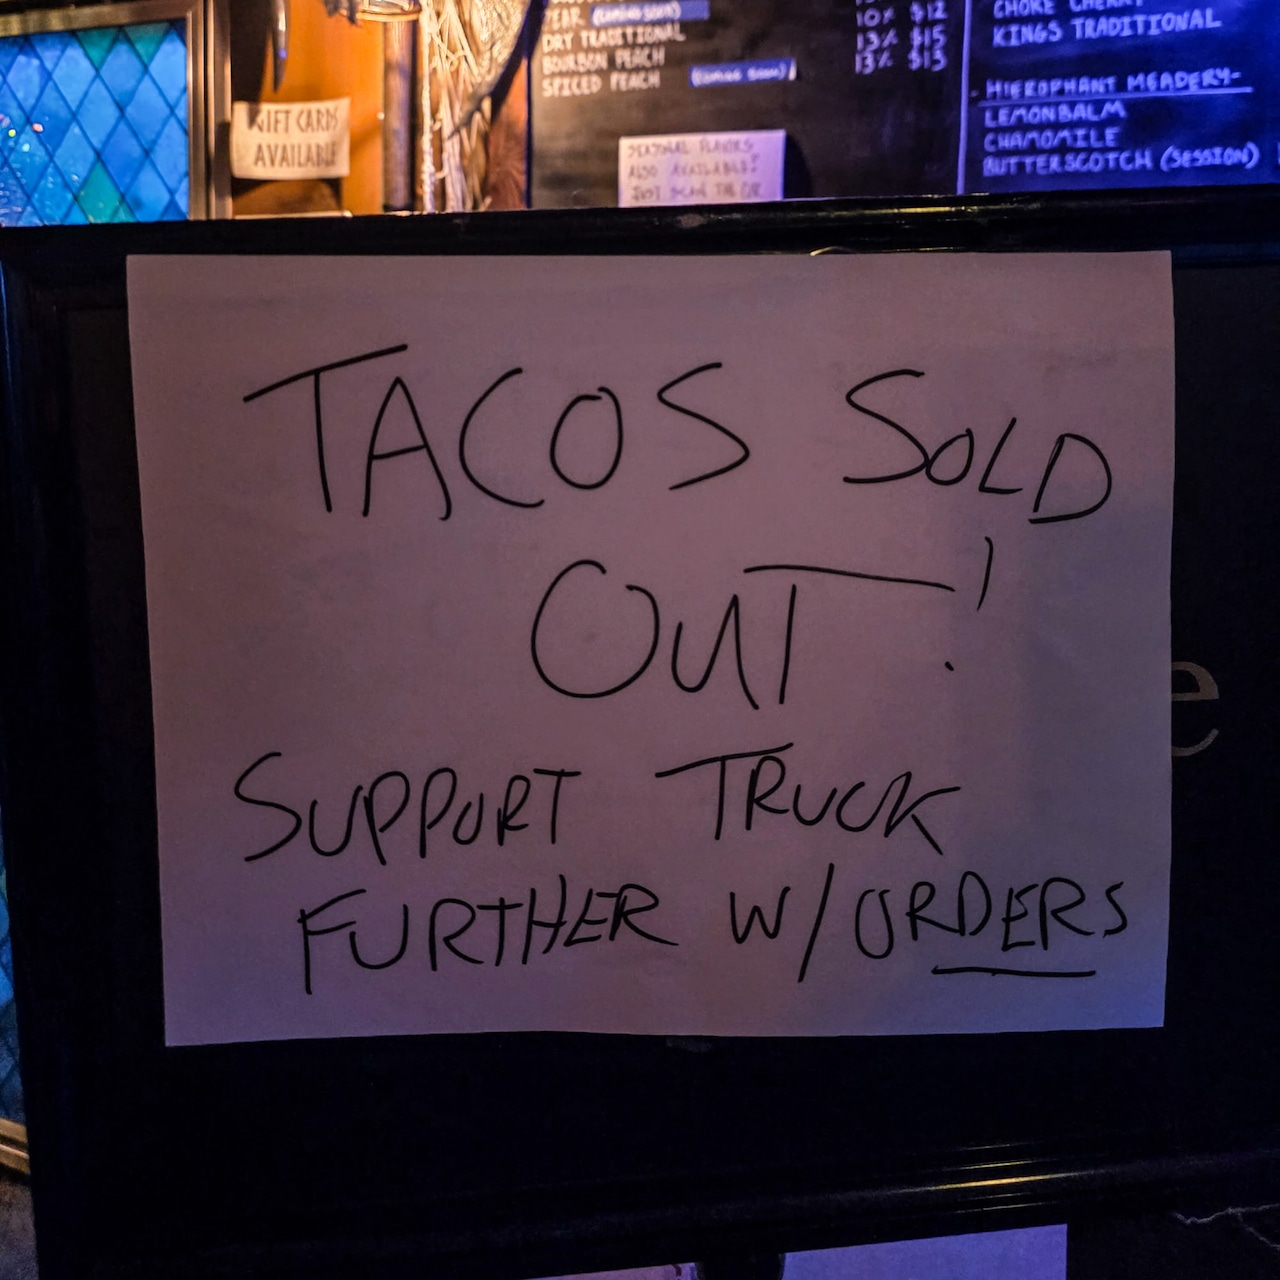 GIFT CARDS
AVAILABLE
(COMING SOON)
DRY TRADITIONAL
BOURBON PEACH
SPICED PEACH (COMING SOON)
10% $12
13% $15
13% $15
SEASONAL FLAVORS
ALSO AVAILABLE!
JUST SCAN THE QR
CHOKE CHERRY
KINGS TRADITIONAL
-HIEROPHANT MEADERY-
LEMONBALM
CHAMOMILE
BUTTERSCOTCH (SESSION)
TACOS SOLD
OUT!
SUPPORT TRUCK
FURTHER W/ORDERS
e